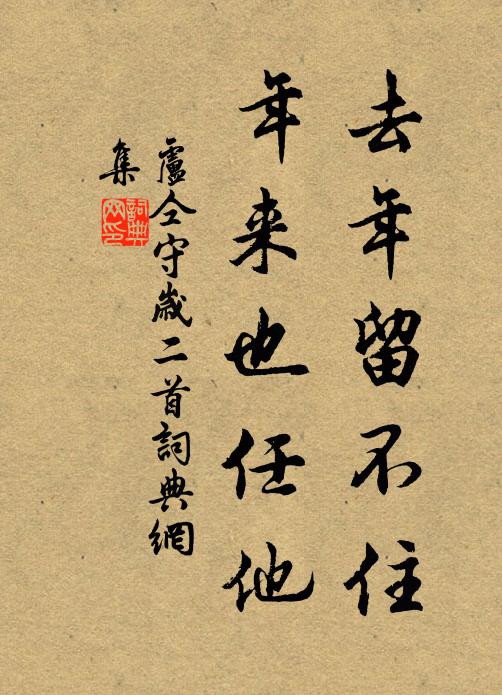 去年留不住
年来也任他
盧仝守歲二首詞典網
集
詞典
网印